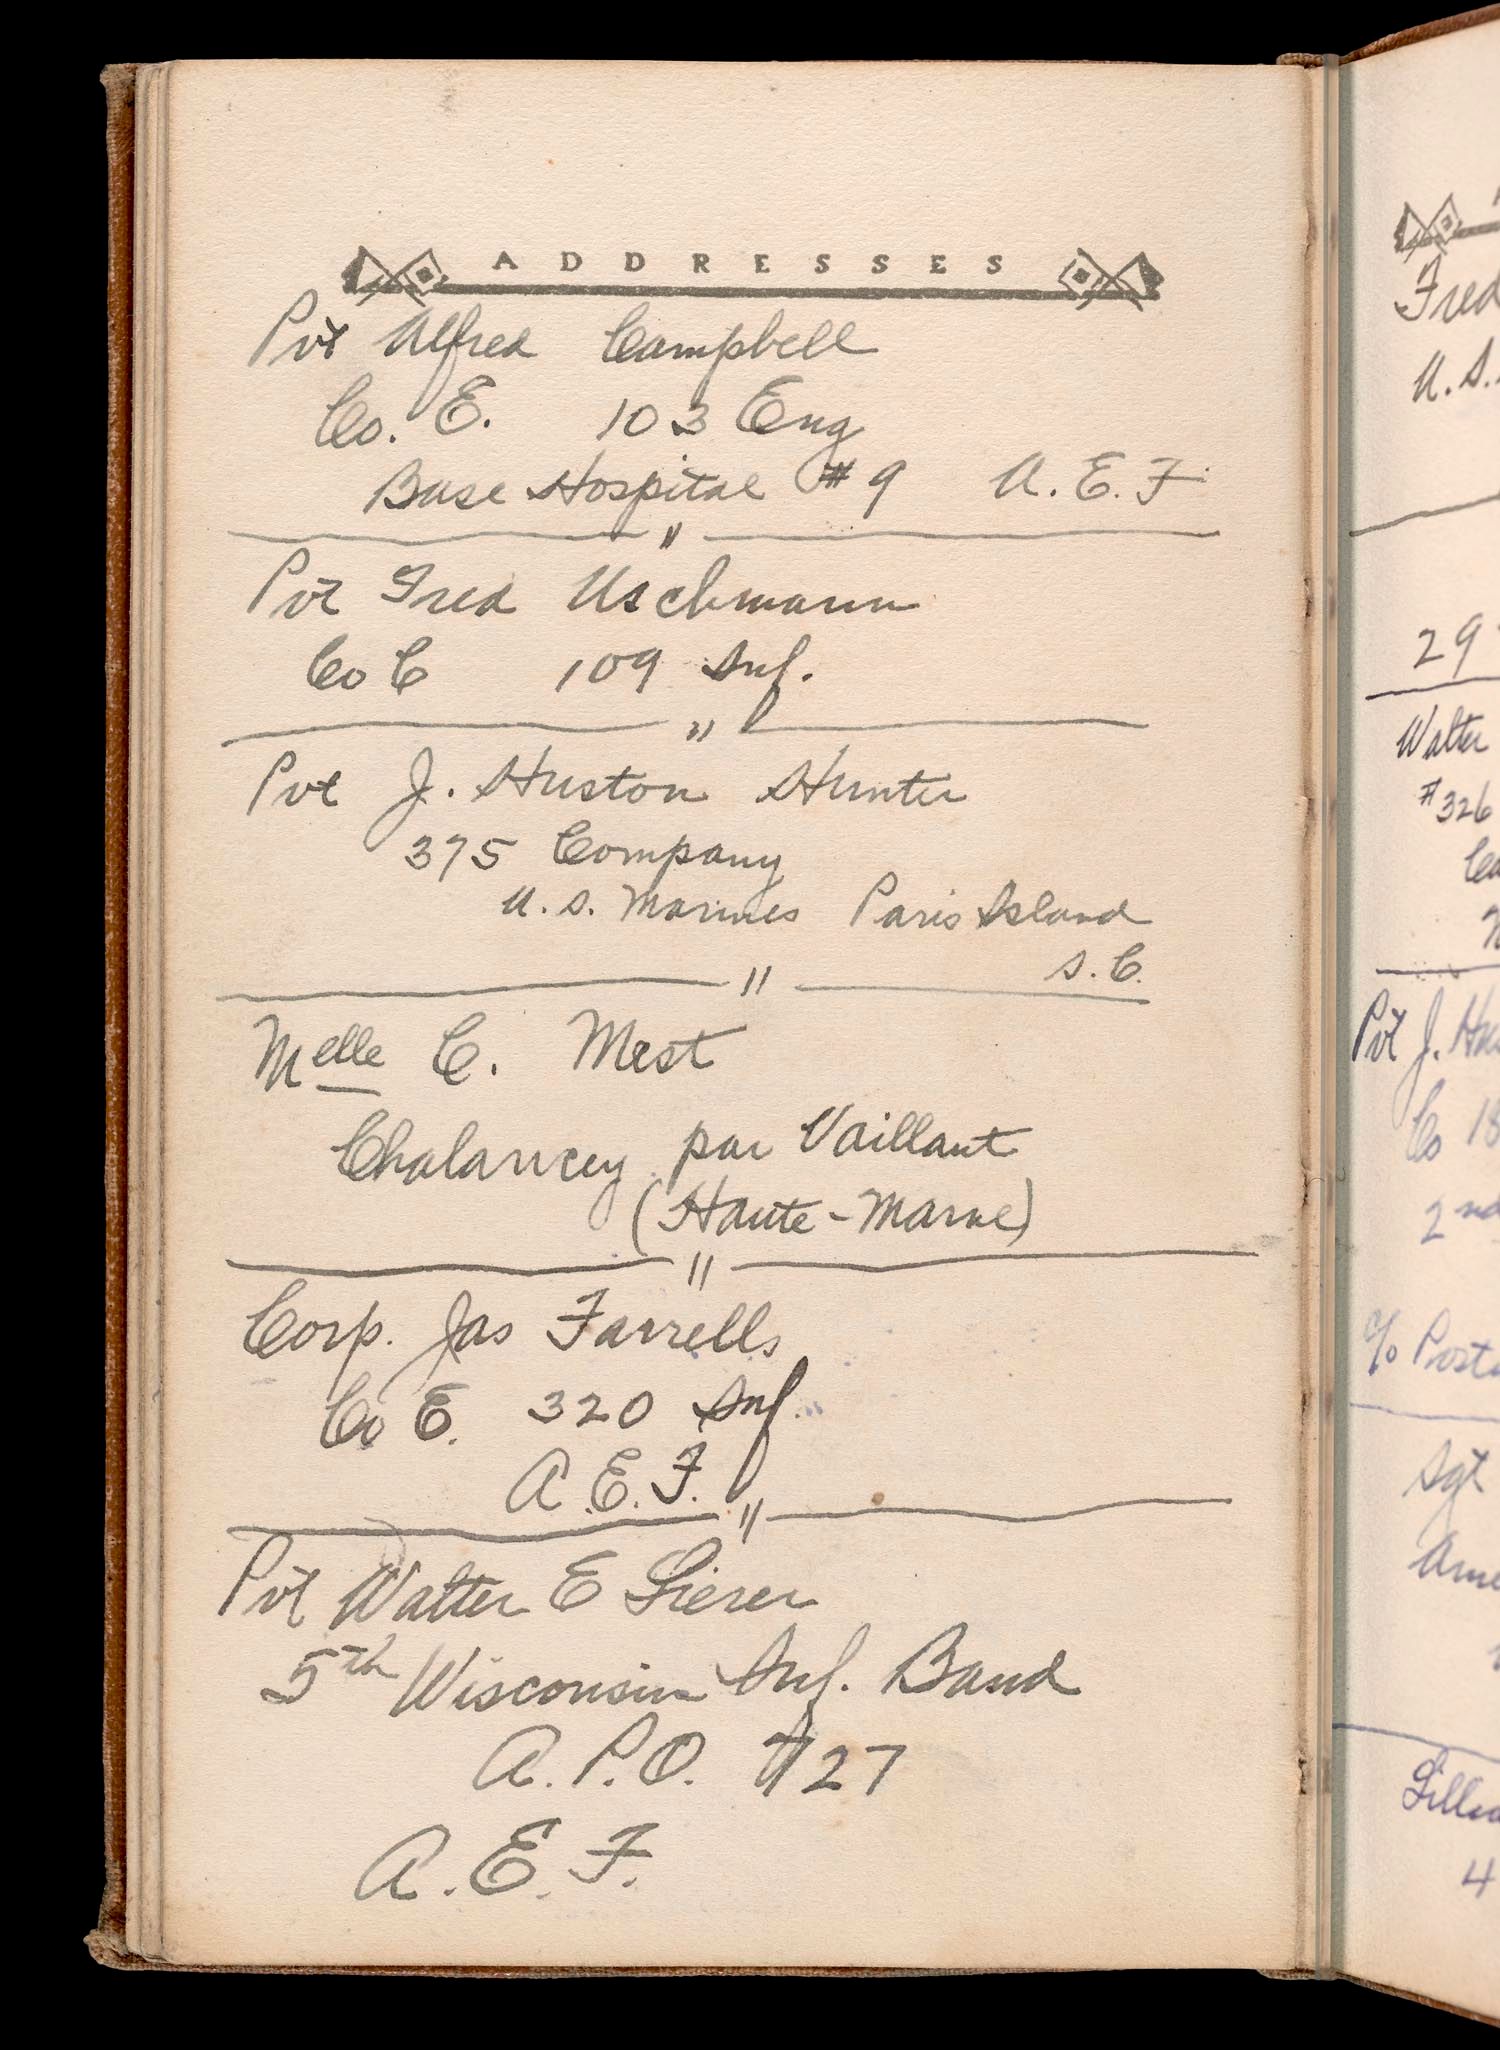 ADDRESSES
Pvt Alfred Campbell
Co. E. 103 Eng
Base Hospital #9 A.E.F.
"
Pvt Fred Uschmann
Co C 109 Inf.
"
Pvt J. Huston Hunter
375 Company
U.S. Marines Paris Island
S.C.
"
Melle C. Mest
Chalancey par Vaillant
(Haute-Marne)
"
Corp. Jas Farrells
Co E. 320 Inf.
A.E.F.
"
Pvt Walter E
5th Wisconsin Inf. Band
A.P.O. #727
A.E.F.
Fred
U.S.
29
Walter
#326
Pvt J.
Co 18
2nd
c/o
Sgt
4